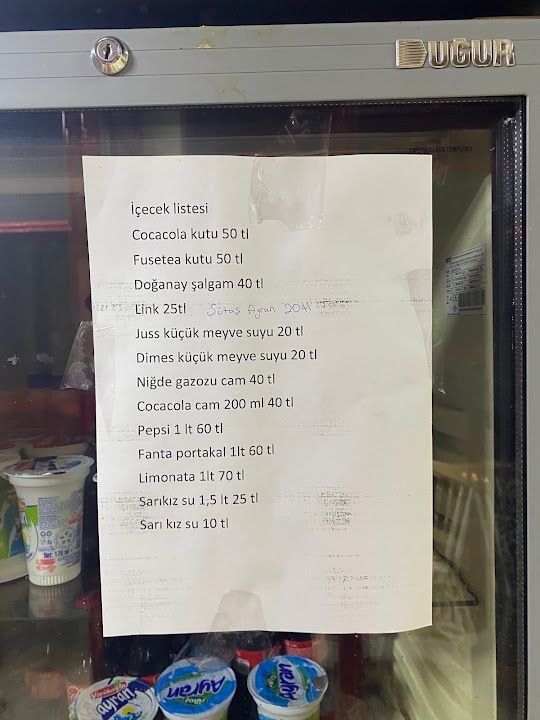 UĞUR
İçecek listesi
Cocacola kutu 50 tl
Fusetea kutu 50 tl
Doğanay şalgam 40 tl
Link 25tl Sütaş Ayran 20tl
Juss küçük meyve suyu 20 tl
Dimes küçük meyve suyu 20 tl
Niğde gazozu cam 40 tl
Cocacola cam 200 ml 40 tl
Pepsi 1 lt 60 tl
Fanta portakal 1lt 60 tl
Limonata 1lt 70 tl
Sarıkız su 1,5 lt 25 tl
Sarı kız su 10 tl
Ayran
Ayran
Ayran